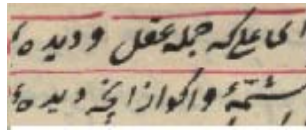 ای علی که جمله عقل و دیدهٔ
شمّهٔ واگو از آنچه دیدهٔ